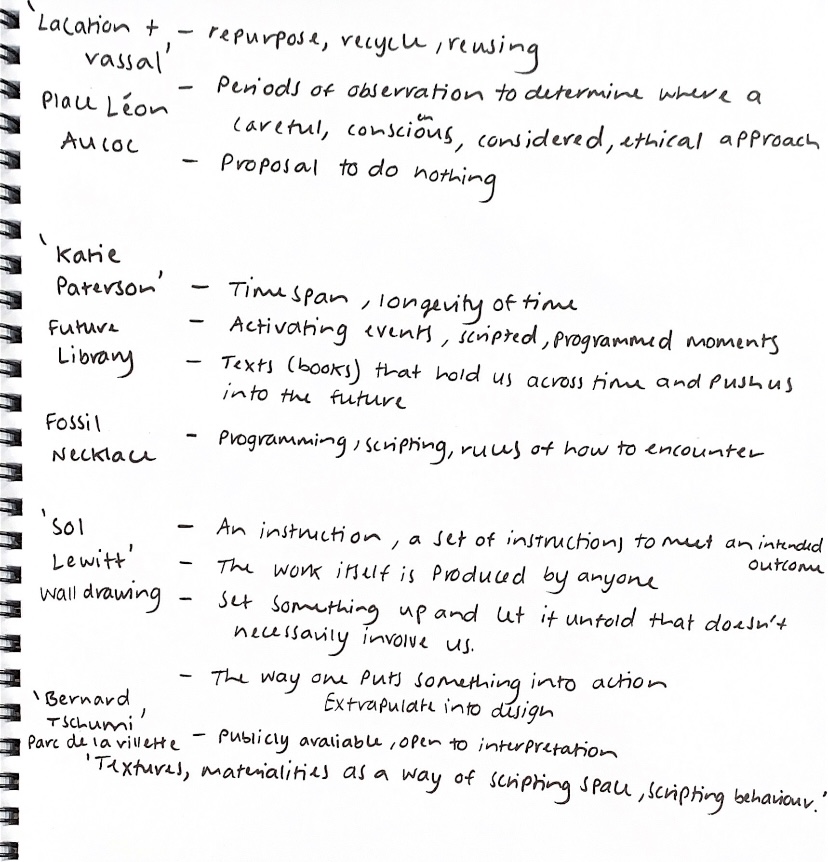 'Lacation + - repurpose, recycle, reusing
vassal'
- Periods of observation to determine where a
Place Léon
careful, conscious, considered, ethical approach
Aucoc
- Proposal to do nothing
'Katie
Paterson' - Time span, longevity of time
Future - Activating events, scripted, programmed moments
Library - Texts (books) that hold us across time and push us
into the future
Fossil
Necklace - Programming, scripting, rules of how to encounter
'Sol - An instruction, a set of instructions to meet an intended
outcome
Lewitt' - The work itself is produced by anyone
Wall drawing - Set something up and let it unfold that doesn't
necessarily involve us.
- The way one puts something into action
'Bernard, Extrapulate into design
Tschumi'
Parc de la villette - Publicly avaliable, open to interpretation
'Textures, materialities as a way of scripting space, scripting behaviour.'